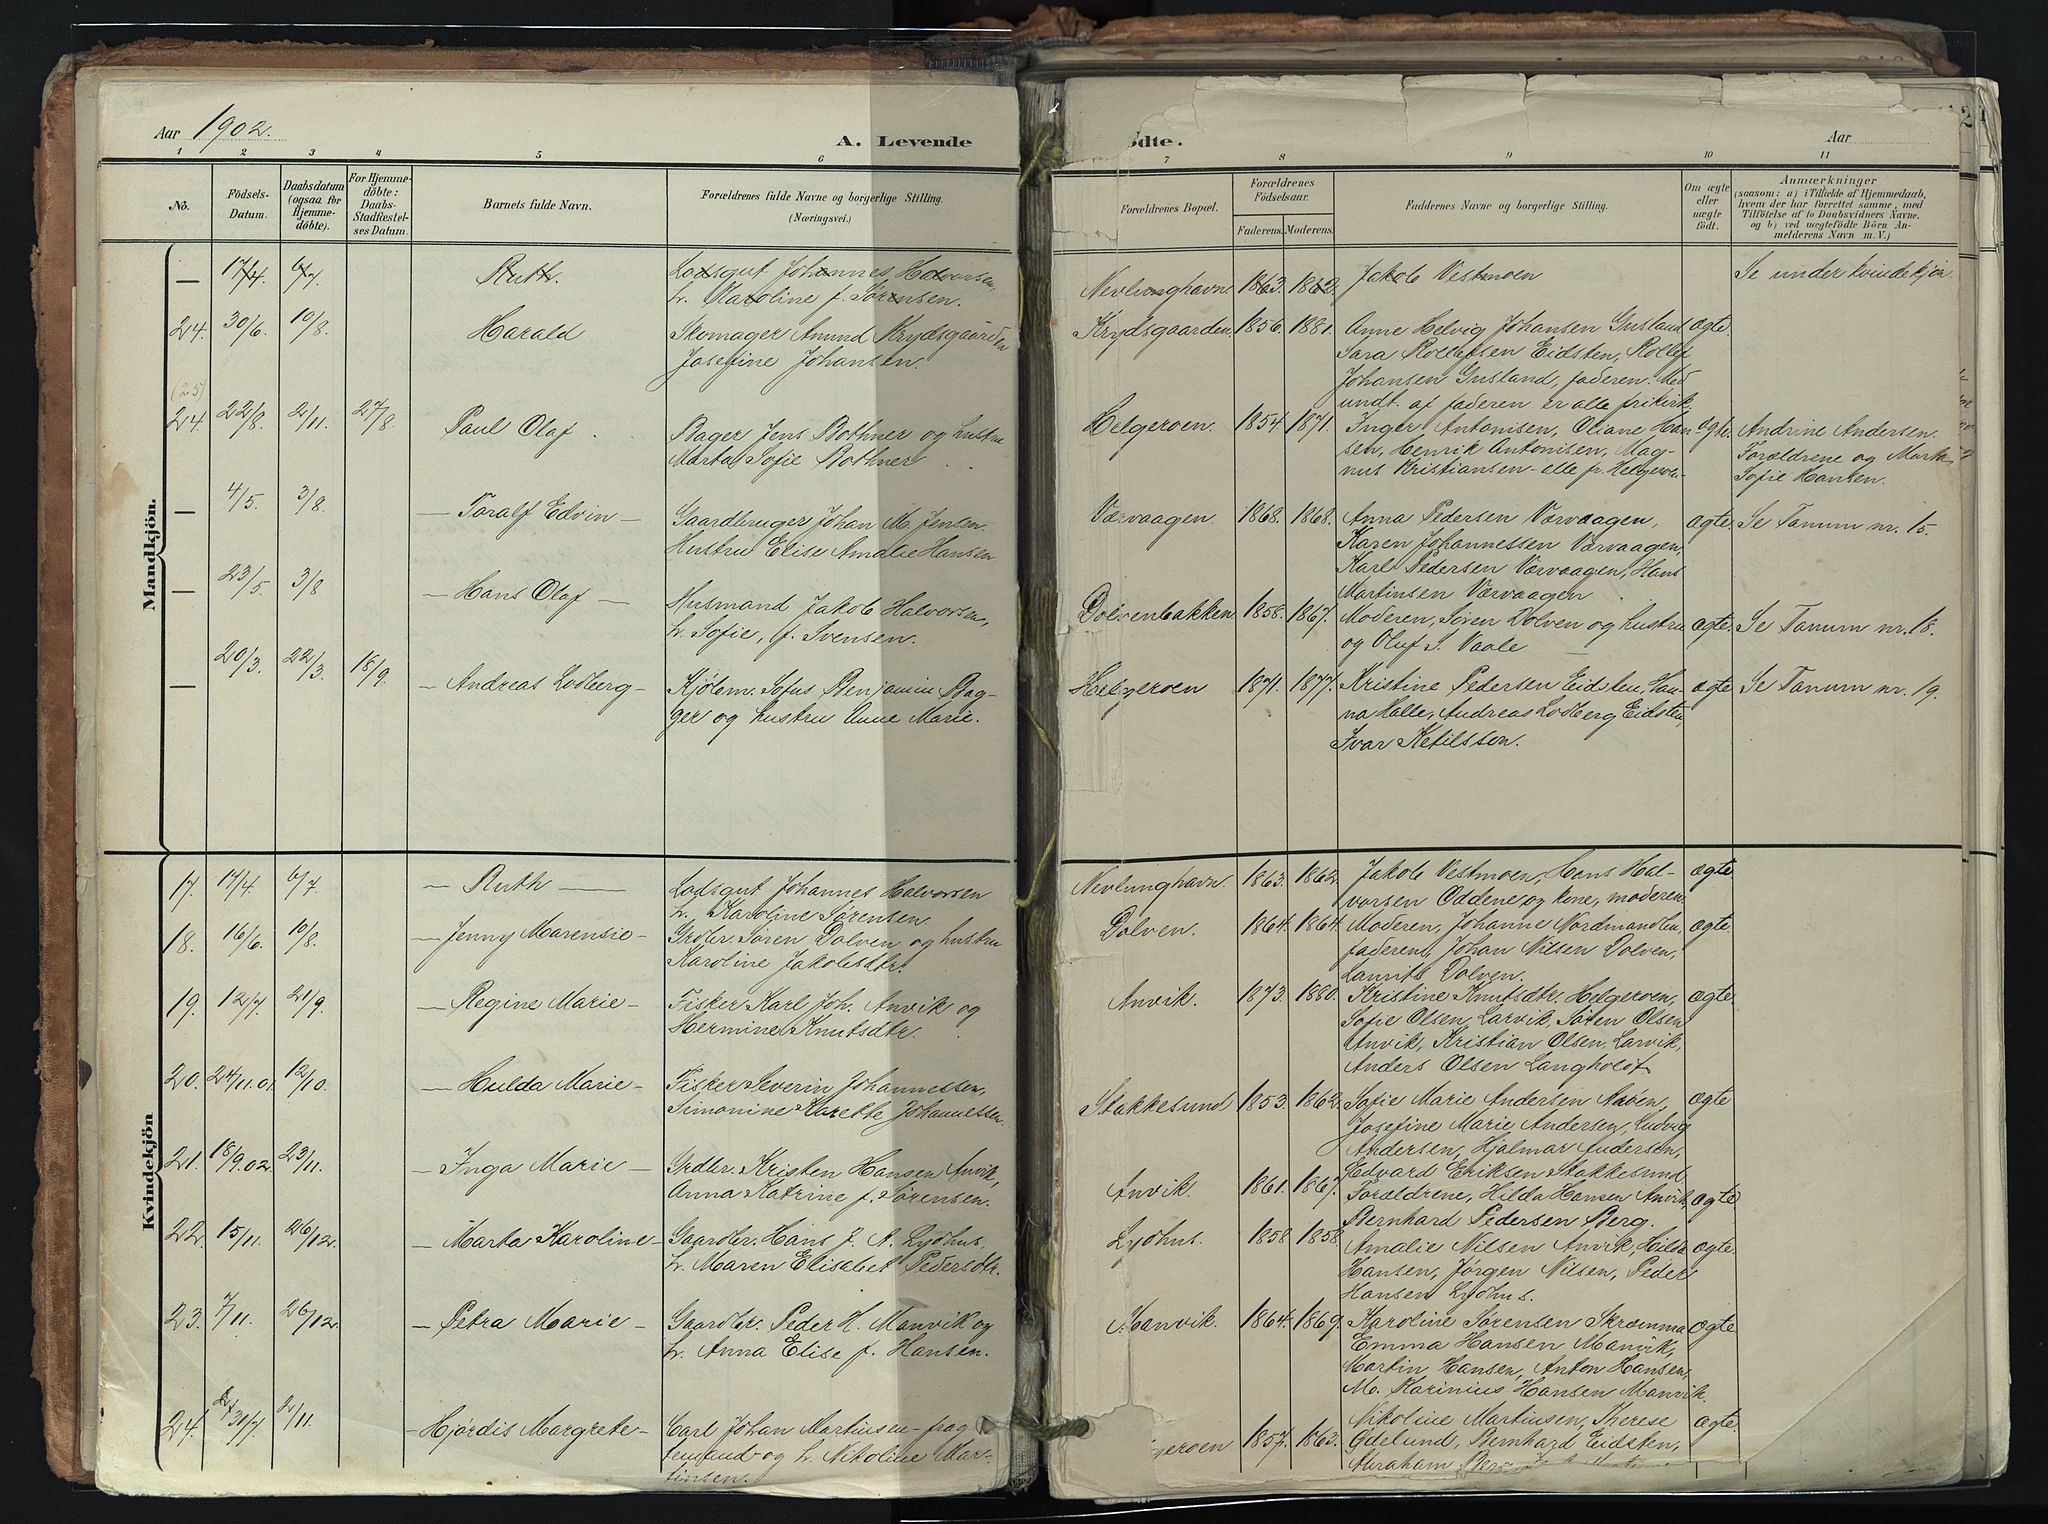 Aar 1902.
A. Levende
ødte.
Aar
2
1 2 3 4 5 6 7 8 9 10 11
No.
Födsels-
Datum.
Daabsdatum
(ogsaa for
Hjemme-
döbte).
For Hjemme-
döbte:
Daabs-
Stadfæstel-
ses Datum.
Barnets fulde Navn.
Forældrenes fulde Navne og borgerlige Stilling.
(Næringsvei.)
Forældrenes Bopæl.
Forældrenes
Födselsaar.
Faderens. Moderens.
Faddernes Navne og borgerlige Stilling.
Om ægte
eller
uægte
födt.
Anmærkninger
(saasom: a) i Tilfælde af Hjemmedaab,
hvem der har forrettet samme, med
Tilföielse af to Daabsvidners Navne.
og b) ved uægtefödte Börn An-
melderens Navn m. V.)
Mandkjön.
— 17/4. 6/7. Ruth. Lodsgut Johannes Halvorsen, Nevlunghavn. 1863. 1862. Jakob Vestmoen Se under kvindekjön
h. Karoline f. Sørensen.
24. 30/6. 10/8. Harald Skomager Amund Krydsgaarden Krydsgaarden. 1856. 1881. Anne Helvig Johansen Gusland ægte.
Josefine Johansen. Sara Rollefsen Eidsten, Rollef
Johansen Gusland, faderen. Med
undt. af faderen er alle frikirk.
(25)
24. 22/8. 2/11. 27/8. Paul Olaf Bager Jens Bothner og hustru Helgeroen. 1854. 1871. Inger Antonisen, Oliane Han ægte. Andrine Andersen.
Marta Sofie Bothner. sen, Henrik Antonisen, Mag- Forældrene og Marta
nus Kristiansen - alle fr. Helgeroen Sofie Hansen.
— 4/5. 3/8. — Toralf Edvin — Gaardbruger Johan M. Jensen. Værvaagen. 1868. 1868. Anna Pedersen Værvaagen, ægte Se Tanum nr. 15.
Hustru Elise Amalie Hansen Karen Johannessen Værvaagen,
Karl Pedersen Værvaagen, Hans
Martinsen Værvaagen
— 23/5. 3/8 — Hans Olaf — Husmand Jakob Halvorsen, Dolvenbakken 1858. 1867. Moderen, Søren Dolven og hustru ægte. Se Tanum nr. 18.
h. Sofie, f. Svensen. og Oluf S. Vaale
— 20/3. 22/3. 18/9. — Andreas Lodberg — Kjøbm. Sofus Benjamin Bag- Helgeroen 1871. 1877. Kristine Pedersen Eidsten, Han- ægte Se Tanum nr. 19.
ger og hustru Anne Marie. na Halle, Andreas Lodberg Eidsten,
Ivar Ketilssen.
Kvindekjön
17. 17/4. 6/7. — Ruth — Lodsgut Johannes Halvorsen Nevlunghavn. 1863. 1862. Jakob Vestmoen, Hans Hal- ægte
h. Karoline Sørensen. vorsen Oddene og kone, moderen
18. 16/6. 10/8. — Jenny Marensie — Grdbr. Søren Dolven og hustru Dolven. 1864. 1864. Moderen, Johanne Nordmandlen, ægte.
Karoline Jakobsdtr. faderen, Johan Nilsen Dolven,
Laurits Dolven.
19. 12/7. 21/9. — Regine Marie — Fisker Karl Joh. Anvik og Anvik. 1873. 1880. Kristine Knutsdtr. Helgeroen, ægte.
Hermine Knutsdtr. Sofie Olsen, Larvik, Søren Olsen
Anvik, Kristian Olsen, Larvik,
Anders Olsen Langholdt
20. 24/11.01. 12/10. — Hulda Marie — Fisker Severin Johannessen, Stokkesund 1853. 1862. Sofie Marie Andersen Naven, ægte
Simonine Karette Johannessen. Josefine Marie Andersen, Ludvig
Andersen, Hjalmar Andersen,
Edvard Eriksen Stokkesund
21. 18/9.02. 23/11. — Inga Marie — Grdbr. Kristen Hansen Anvik, Anvik. 1861. 1867. Forældrene, Hilda Hansen Anvik, ægte
Anna Katrine f. Sørensen. Bernhard Pedersen Berg.
22. 15/11. 26/12. — Marta Karoline — Gaardbr. Hans J. A. Lydhus, Lydhus. 1858 1858. Amalie Nilsen Anvik, Hilda ægte.
h. Maren Elisabet Pedersdtr. Hansen, Jørgen Nilsen, Peder
Hansen Lydhus.
23. 7/11. 26/12. — Petra Marie — Gaardbr. Peder H. Manvik og Manvik. 1864. 1869. Karoline Sørensen Skramma ægte
h. Anna Elise f. Hansen. Emma Hansen Manvik,
Martin Hansen, Anton Hansen,
M. Karinius Hansen Manvik.
24. 31/7. 2/11. — Hjørdis Margrete — Carl Johan Martinsen - frag geroen 1857. 1863. Nikoline Martinsen, Therese ægte.
temand - og h. Nikoline Mar- Ødelund, Bernhard Eidsten,
tinsen. Abraham